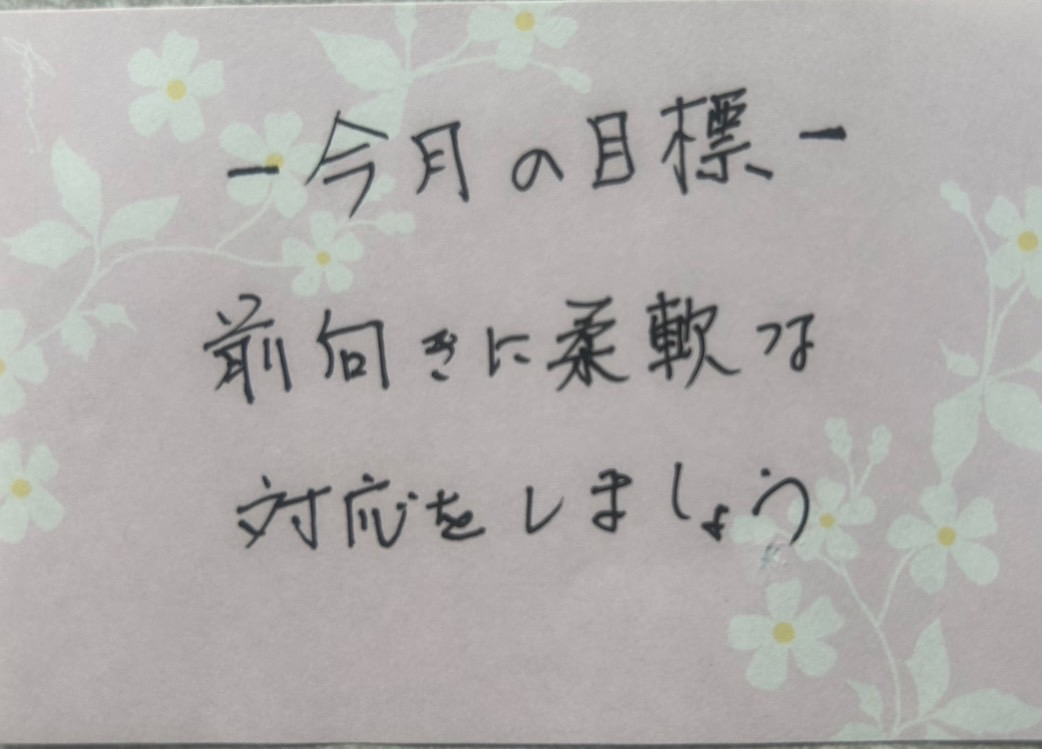 -今月の目標-
前向きに柔軟な
対応をしましょう